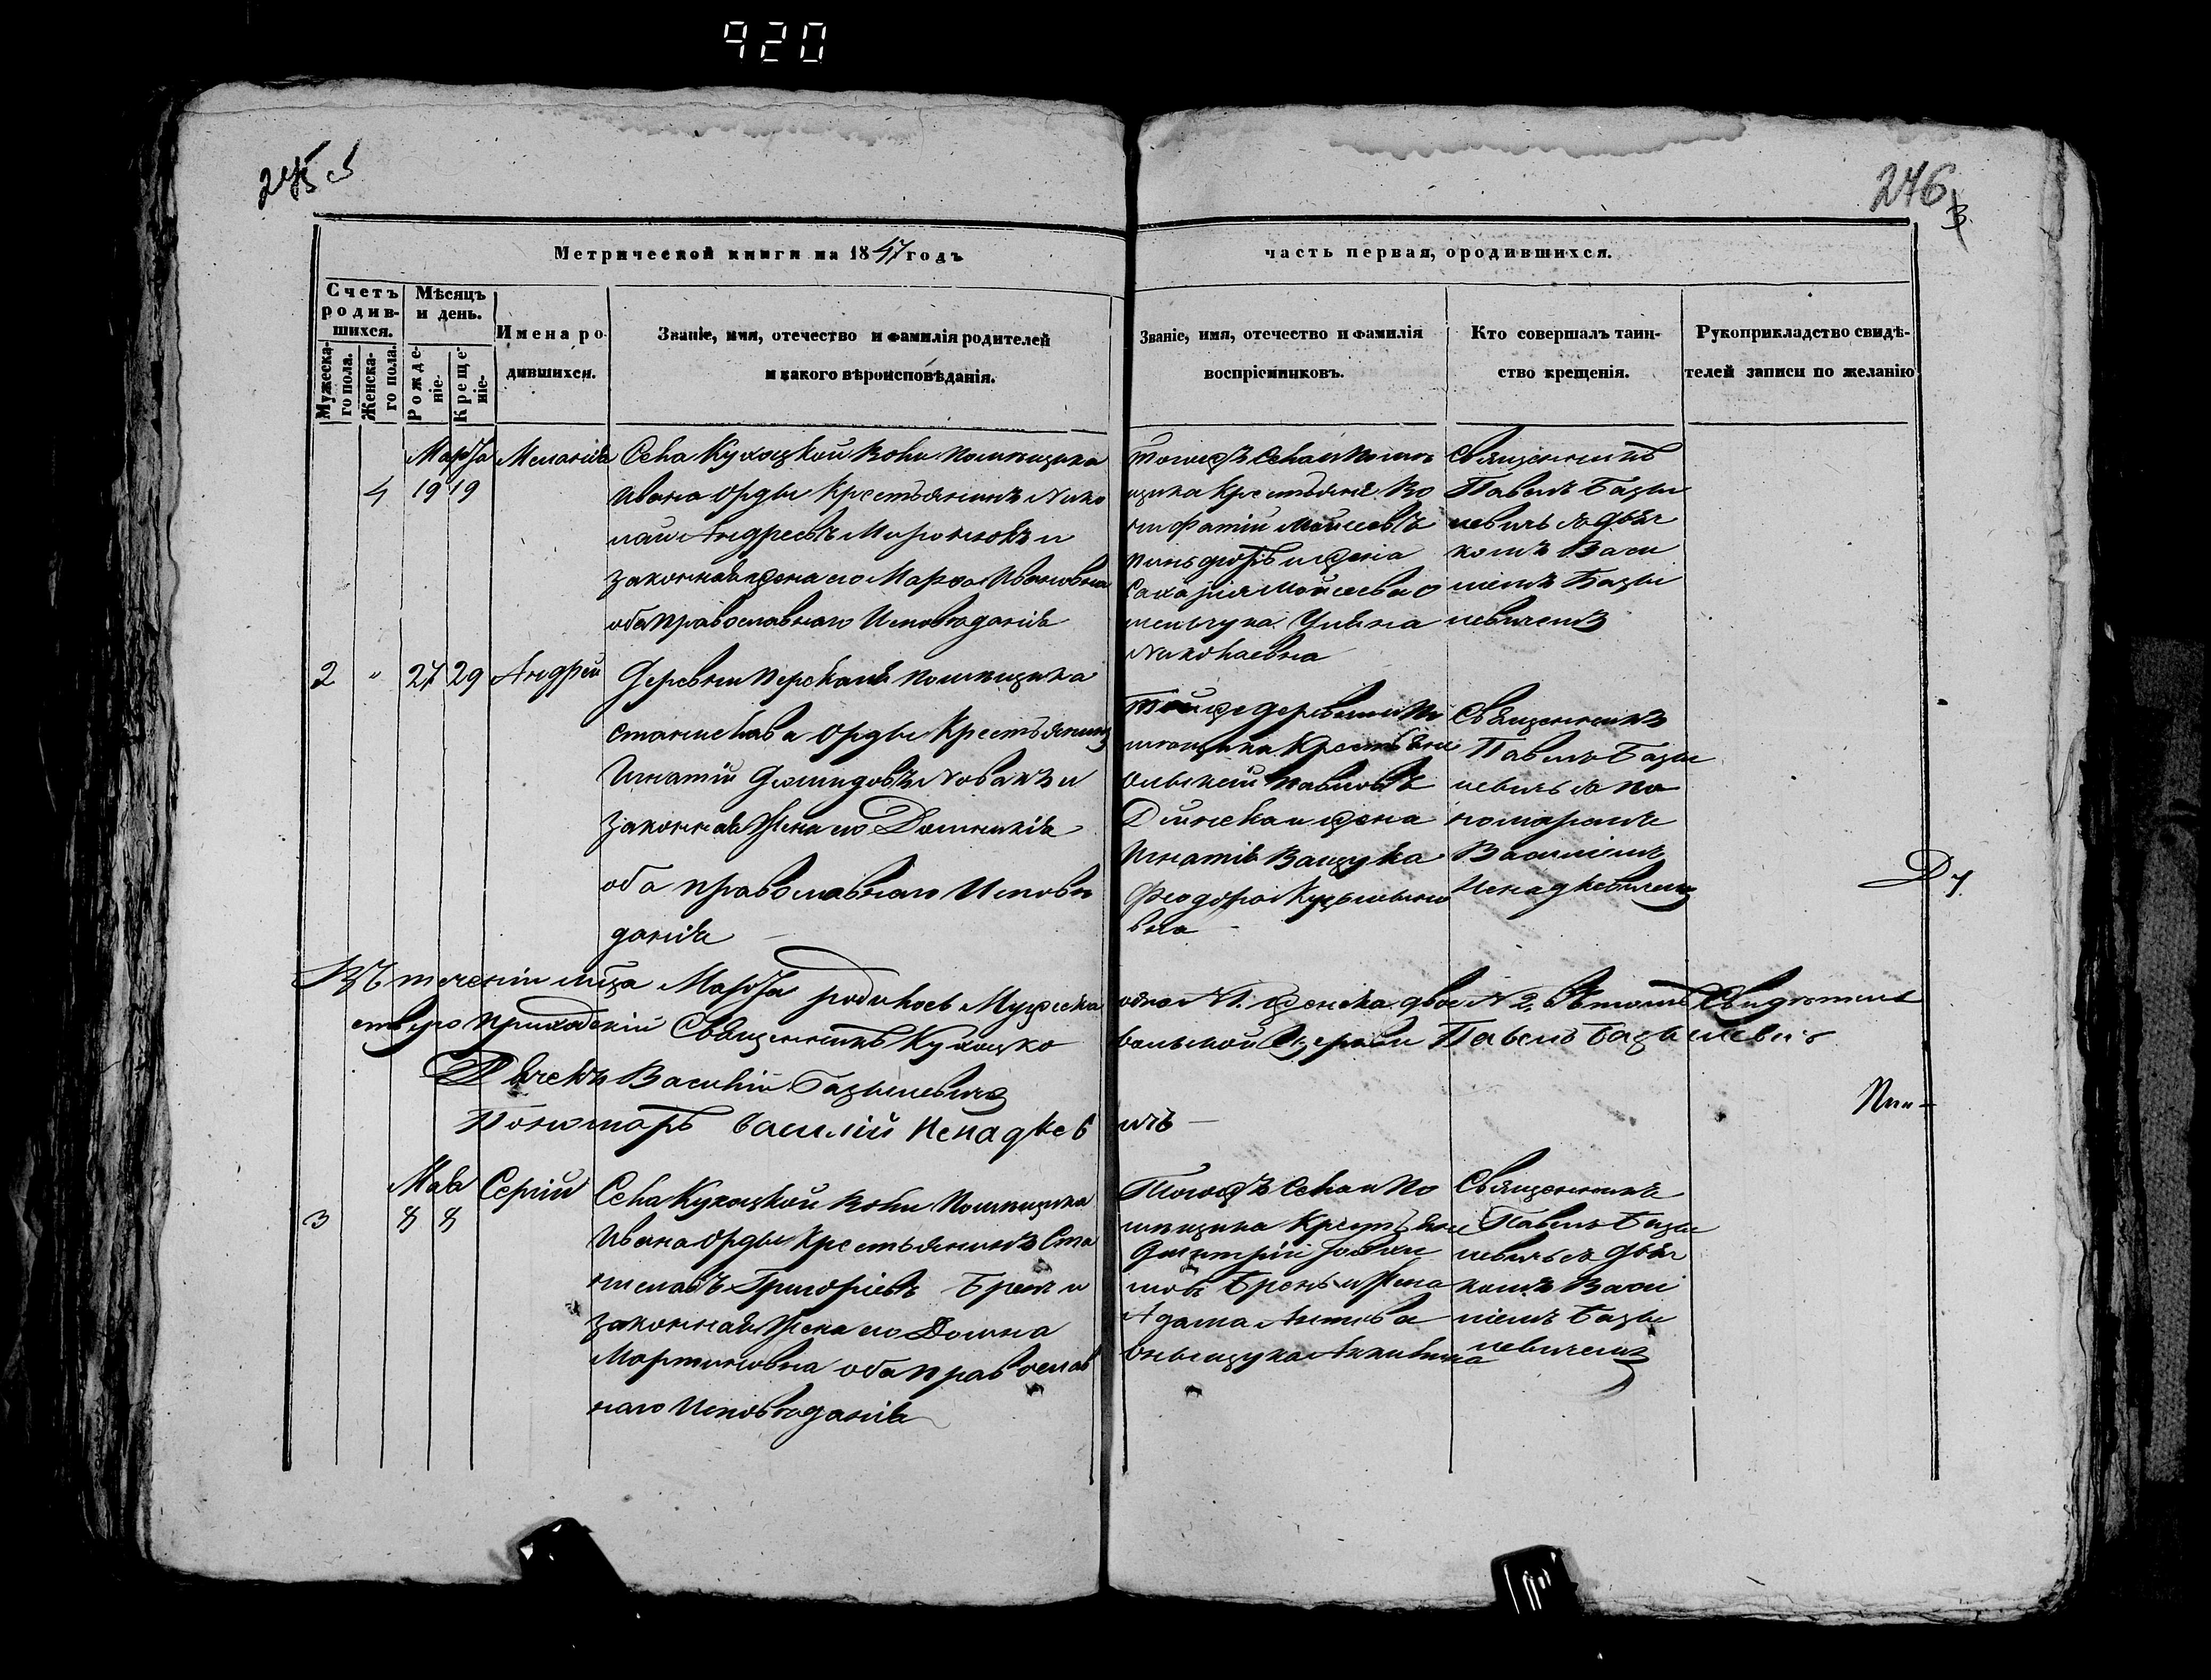 920
246
Метрической книги на 1847 годъ
часть первая, о родившихся.
Счетъ родив-
шихся.
Мужеска-
го пола.
Женска-
го пола.
Мѣсяцъ
и день.
Рожде-
ніе.
Креще-
ніе.
Имена ро-
дившихся.
Званіе, имя, отечество и фамилія родителей
и какого вѣроисповѣданія.
Званіе, имя, отечество и фамилія
воспріемниковъ.
Кто совершалъ таин-
ство крещенія.
Рукоприкладство свидѣ-
телей записи по желанію
4
Марта
19 19
Меланія
Села Кухоцкой Воли помѣщика
Ивана Орды крестьянинъ Нико
лай Андреевъ Миронюкъ и
законная жена его Марѳа Ивановна
оба православнаго Исповѣданія
тогожъ села и помѣ
щика крестьяне Во
нифатій Моисеевъ
и жена
Моисеева
Ульяна
Николаевна
Священникъ
Павелъ Базы
левичь съ дьяч
комъ Васи
ліемъ Базы
левичемъ
2
"
27 29
Андрей
Деревни помѣщика
Станислава Орды крестьянинъ
Игнатій Новакъ и
законная жена его Домникія
оба православнаго Исповѣ
данія
Той же деревни по
мѣщика крестьяне
Павловъ
и жена
Игнатія
Феодора Кузьмына
вна
Священникъ
Павелъ Базы
левичь съ по
номаремъ
Василіемъ
Ненадкевичемъ
Въ теченіи мца Марта родилось Мужеска
одно №1. женска двое №2. въ томъ свидѣтель
ствую приходскій Священникъ Кухоцко
вольской Церкви Павелъ Базылевичъ
Дьячекъ Василій Базылевичъ
Пономарь Василій Ненадкев
ичъ
3
Мая
8 8
Сергій
Села Кухоцкой Воли помѣщика
Ивана Орды крестьянинъ Ста
ниславъ Григоріевъ Брень и
законная жена его Домна
Мартиновна оба православ
наго Исповѣданія
Тогожъ села и по
мѣщика крестьяне
Дмитрій
мовъ Брень и жена
Адама
Священникъ
Павелъ Базы
левичь съ дьяч
комъ Васи
ліемъ Базы
левичемъ